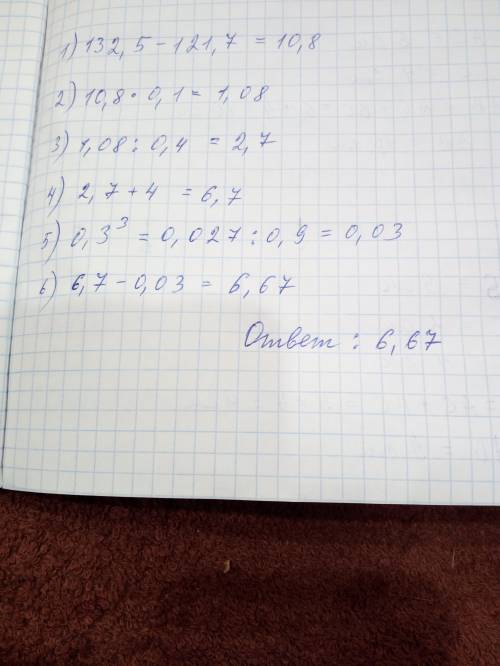 1) 132,5 - 121,7 = 10,8
2) 10,8 · 0,1 = 1,08
3) 1,08 : 0,4 = 2,7
4) 2,7 + 4 = 6,7
5) 0,3³ = 0,027 : 0,9 = 0,03
6) 6,7 - 0,03 = 6,67
Ответ : 6,67